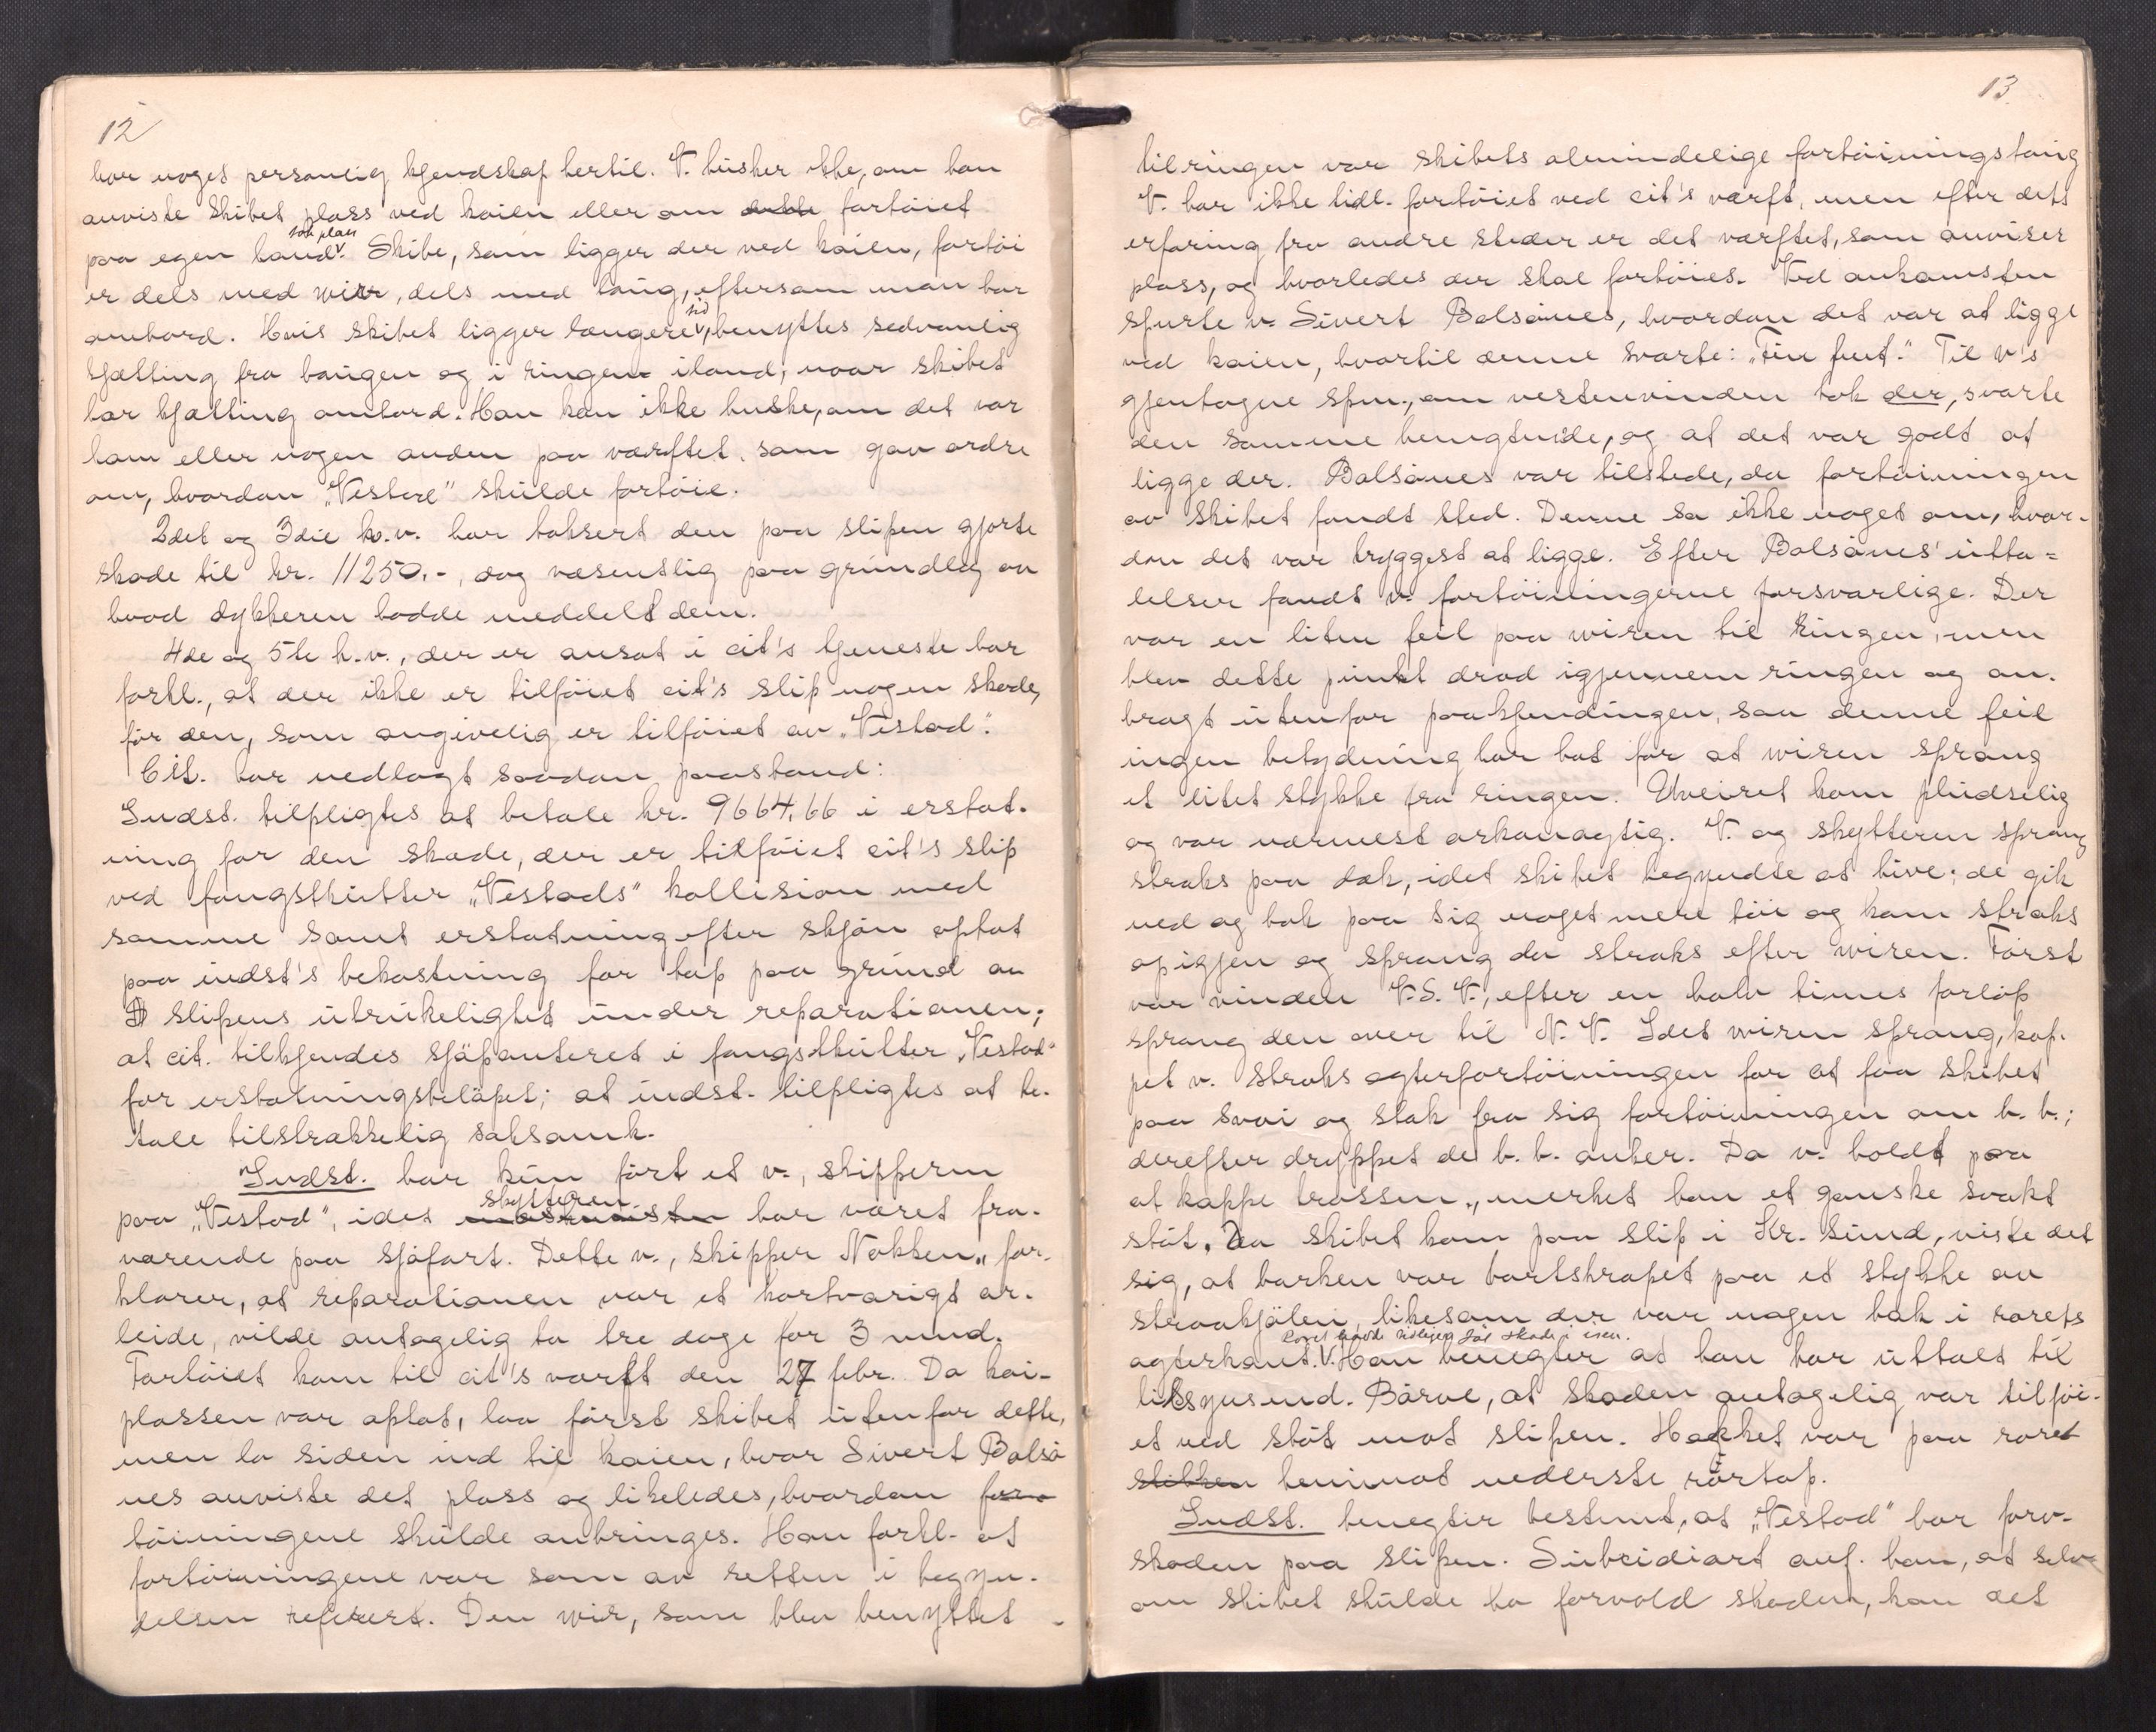 12
har noget personlig kjendskap hertil. V. husker ikke, om han
anviste skibet plass ved kaien eller om dette fortøiet
paa egen haand. tok plass Skibe, som ligger der ved kaien, fortøi
er dels med wirr, dels med taug, eftersom man har
ombord. Hvis skibet ligger længere tid, benyttes sedvanlig
kjætting fra baugen og i ringen iland, naar skibet
har kjætting ombord. Han kan ikke huske, om det var
ham eller nogen anden paa værftet, som gav ordre
om, hvordan "Vestad" skulde fortøie.
2det og 3die h.v. har taksert den paa slippen gjorte
skade til kr. 11250.-, dog væsentlig paa grundlag av
hvad dykkeren hadde meddelt dem.
4de og 5te h.v., der er ansat i cit's tjeneste har
forkl., at der ikke er tilføiet cit's slip nogen skade,
før den, som angivelig er tilføiet av "Vestad".
Cit. har nedlagt saadan paastand:
Indst. tilpligtes at betale kr. 9664,66 i erstat-
ning for den skade, der er tilføiet cit's slip
ved fangstkutter "Vestads" kollision med
samme samt erstatning efter skjøn optat
paa indst's bekostning for tap paa grund av
slipens ubrukelighet under reparationen;
at cit. tilkjendes sjøpanteret i fangstkutter "Vestad"
for erstatningsbeløpet; at indst. tilpligtes at be-
tale tilstrækkelig saksomk.
Indst. har kun ført et v., skipperen
paa "Vestad", idet maskinisten skytteren har været fra-
værende paa sjøfart. Dette v., skipper Nekken, for-
klarer, at reparationen var et kortvarigt ar-
beide, vilde antagelig ta tre dage for 3 mnd.
Fartøiet kom til cit's værft den 27 febr. Da kai-
plassen var optat, laa først skibet utenfor dette,
men la siden ind til kaien, hvor Sivert Bolsø
nes anviste det plass og likeledes, hvordan for-
tøiningene skulde anbringes. Han forkl. at
fortøiningene var som av retten i begyn-
delsen referert. Den wir, som blev benyttet
13
til ringen var skibets almindelige fortøiningstaug
V. har ikke tidl. fortøiet ved cit's værft, men efter dets
erfaring fra andre steder er det værftet, som anviser
plass, og hvorledes der skal fortøies. Ved ankomsten
spurte v. Sivert Bolsønes, hvordan det var at ligge
ved kaien, hvortil denne svarte: "Fin fint." Til v's
gjentagne spm., om vestenvinden tok der, svarte
den samme benegtende, og at det var godt at
ligge der. Bolsønes var tilstede, da fortøiningen
av skibet fandt sted. Denne sa ikke noget om, hvor-
dan det var tryggest at ligge. Efter Bolsønes' utta-
lelser fandt v. fortøiningerne forsvarlige. Der
var en liten feil paa wiren til ringen, men
blev dette punkt drad igjennem ringen og an-
bragt utenfor paakjendingen, saa denne feil
ingen betydning har hat for at wiren sprang
et litet stykke fra ringen. Uveiret kom pludselig
og var nærmest orkanagtig. V. og skytteren sprang
straks paa dæk, idet skibet begyndte at hive; de gik
ned og tok paa sig noget mere tøi og kom straks
op igjen og sprang da straks efter wiren. Først
var vinden V.S.V., efter en halv times forløp
sprang den over til N.V. Idet wiren sprang, kap-
pet v. straks agterfortøiningen for at faa skibet
paa svai og stak fra sig fortøiningen om b.b.;
derefter droppet de b.b. anker. Da v. holdt paa
at kappe trossen, merket han et ganske svakt
støt. Da skibet kom paa slip i Kr. sund, viste det
sig, at barken var bortskrapet paa et stykke av
straakjølen, likesom der var nogen hak i rorets
agterkant. Roret hadde tidligere fåt skade i isen. Han benegter at han har uttalt til
tilsynsmd. Bårve, at skaden antagelig var tilføi-
et ved støt mot slipen. Hakket var paa roret
stikken henimot nederste rørtap.
Indst. benegter bestemt, at "Vestad" har forv.
skaden paa slipen. Subsidiært anf. han, at selv
om skibet skulde ha forvold skaden, kan det